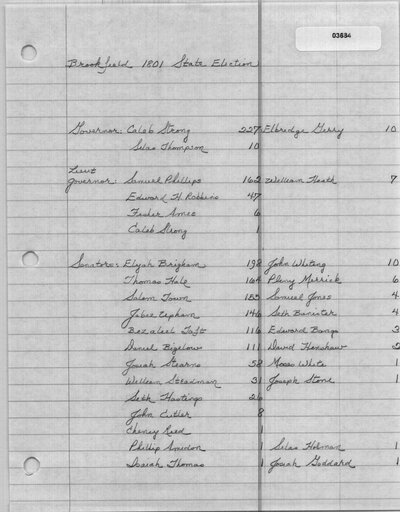 03684
Brookfield 1801 State Election
Governor: Caleb Strong 227 Elbridge Gerry 10
Silas Thompson 10
Lieut
governor: Samuel Phillips 162 William Heath 7
Edward H Robbins 47
Fisher Ames 6
Caleb Strong 1
Senators: Elijah Brigham 198 John Whiting 10
Thomas Hale 164 Pleny Merrick 6
Salem Town 185 Samuel Jones 4
Jabez Upham 146 Seth Banister 4
Bezaleel Taft 116 Edward Bangs 3
Daniel Bigelow 111 David Henshaw 2
Josiah Stearns 58 Moses White 1
William Steadman 31 Joseph Stone 1
Seth Hastings 26
John Cutler 8
Cheney Reed 1
Phillip Amidon 1 Silas Holman 1
Isaiah Thomas 1 Josiah Goddard 1